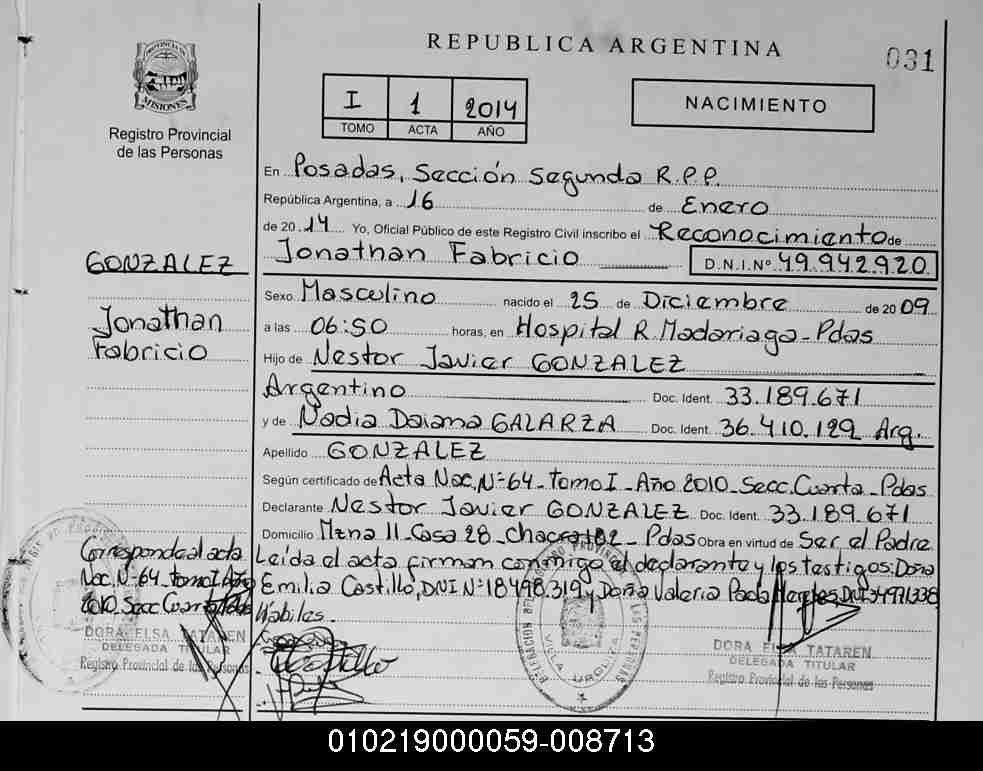 REPUBLICA ARGENTINA
031
PROVINCIA DE
MISIONES
Registro Provincial
de las Personas
I 1 2014
TOMO ACTA AÑO
NACIMIENTO
GONZALEZ
Jonathan
Fabricio
En Posadas, Sección Segunda R.P.P.
República Argentina, a 16 de Enero
de 2014 Yo, Oficial Público de este Registro Civil inscribo el Reconocimiento de
Jonathan Fabricio D.N.I.Nº 49.942.920
Sexo Masculino nacido el 25 de Diciembre de 2009
a las 06:50 horas, en Hospital R. Madariaga-Pdas
Hijo de Nestor Javier GONZALEZ
Argentino Doc. Ident. 33.189.671
y de Nadia Daiana GALARZA Doc. Ident. 36.410.129 Arg.
Apellido GONZALEZ
Según certificado de Acta Nac. Nº 64 - tomo I - Año 2010 - Secc. Cuarta - Pdas
Declarante Nestor Javier GONZALEZ Doc. Ident. 33.189.671
Domicilio Mzna 11 - Casa 28 - Chacra 182 - Pdas Obra en virtud de Ser el Padre
Leída el acta firman conmigo el declarante y los testigos: Doña
Emilia Castillo, DNI Nº 18498.319 y Doña Valeria Paola DNI 34971338
Hábiles.
Corresponde al acta
Nac. Nº 64 - tomo I, Año
2010, Secc Cuarta, Pdas
DORA ELSA TATAREN
DELEGADA TITULAR
Registro Provincial de las Personas
VILLA URQUIZA
DORA ELSA TATAREN
DELEGADA TITULAR
Registro Provincial de las Personas
010219000059-008713